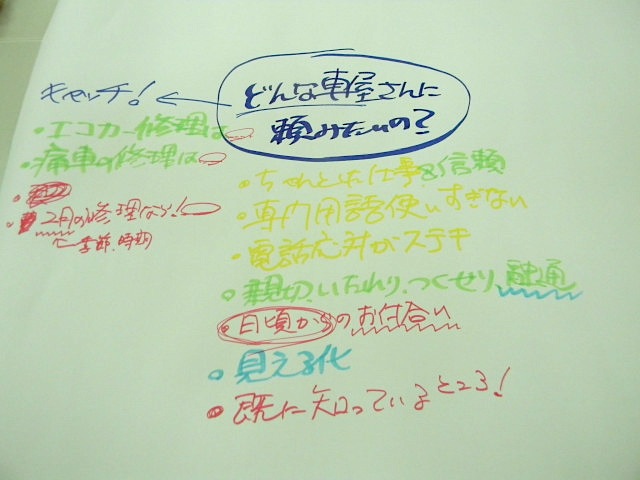 どんな車屋さんに
頼みたいの?
キャッチ!
・エコカー修理は
・痛車の修理は
・2月の修理なら!
季節、時期
・ちゃんとした仕事&信頼
・専門用語使いすぎない
・電話応対がステキ
・親切、いたわり、つくせり、融通
・日頃からのお付合い
・見える化
・既に知っているところ!